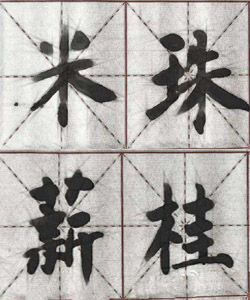 米珠
薪桂